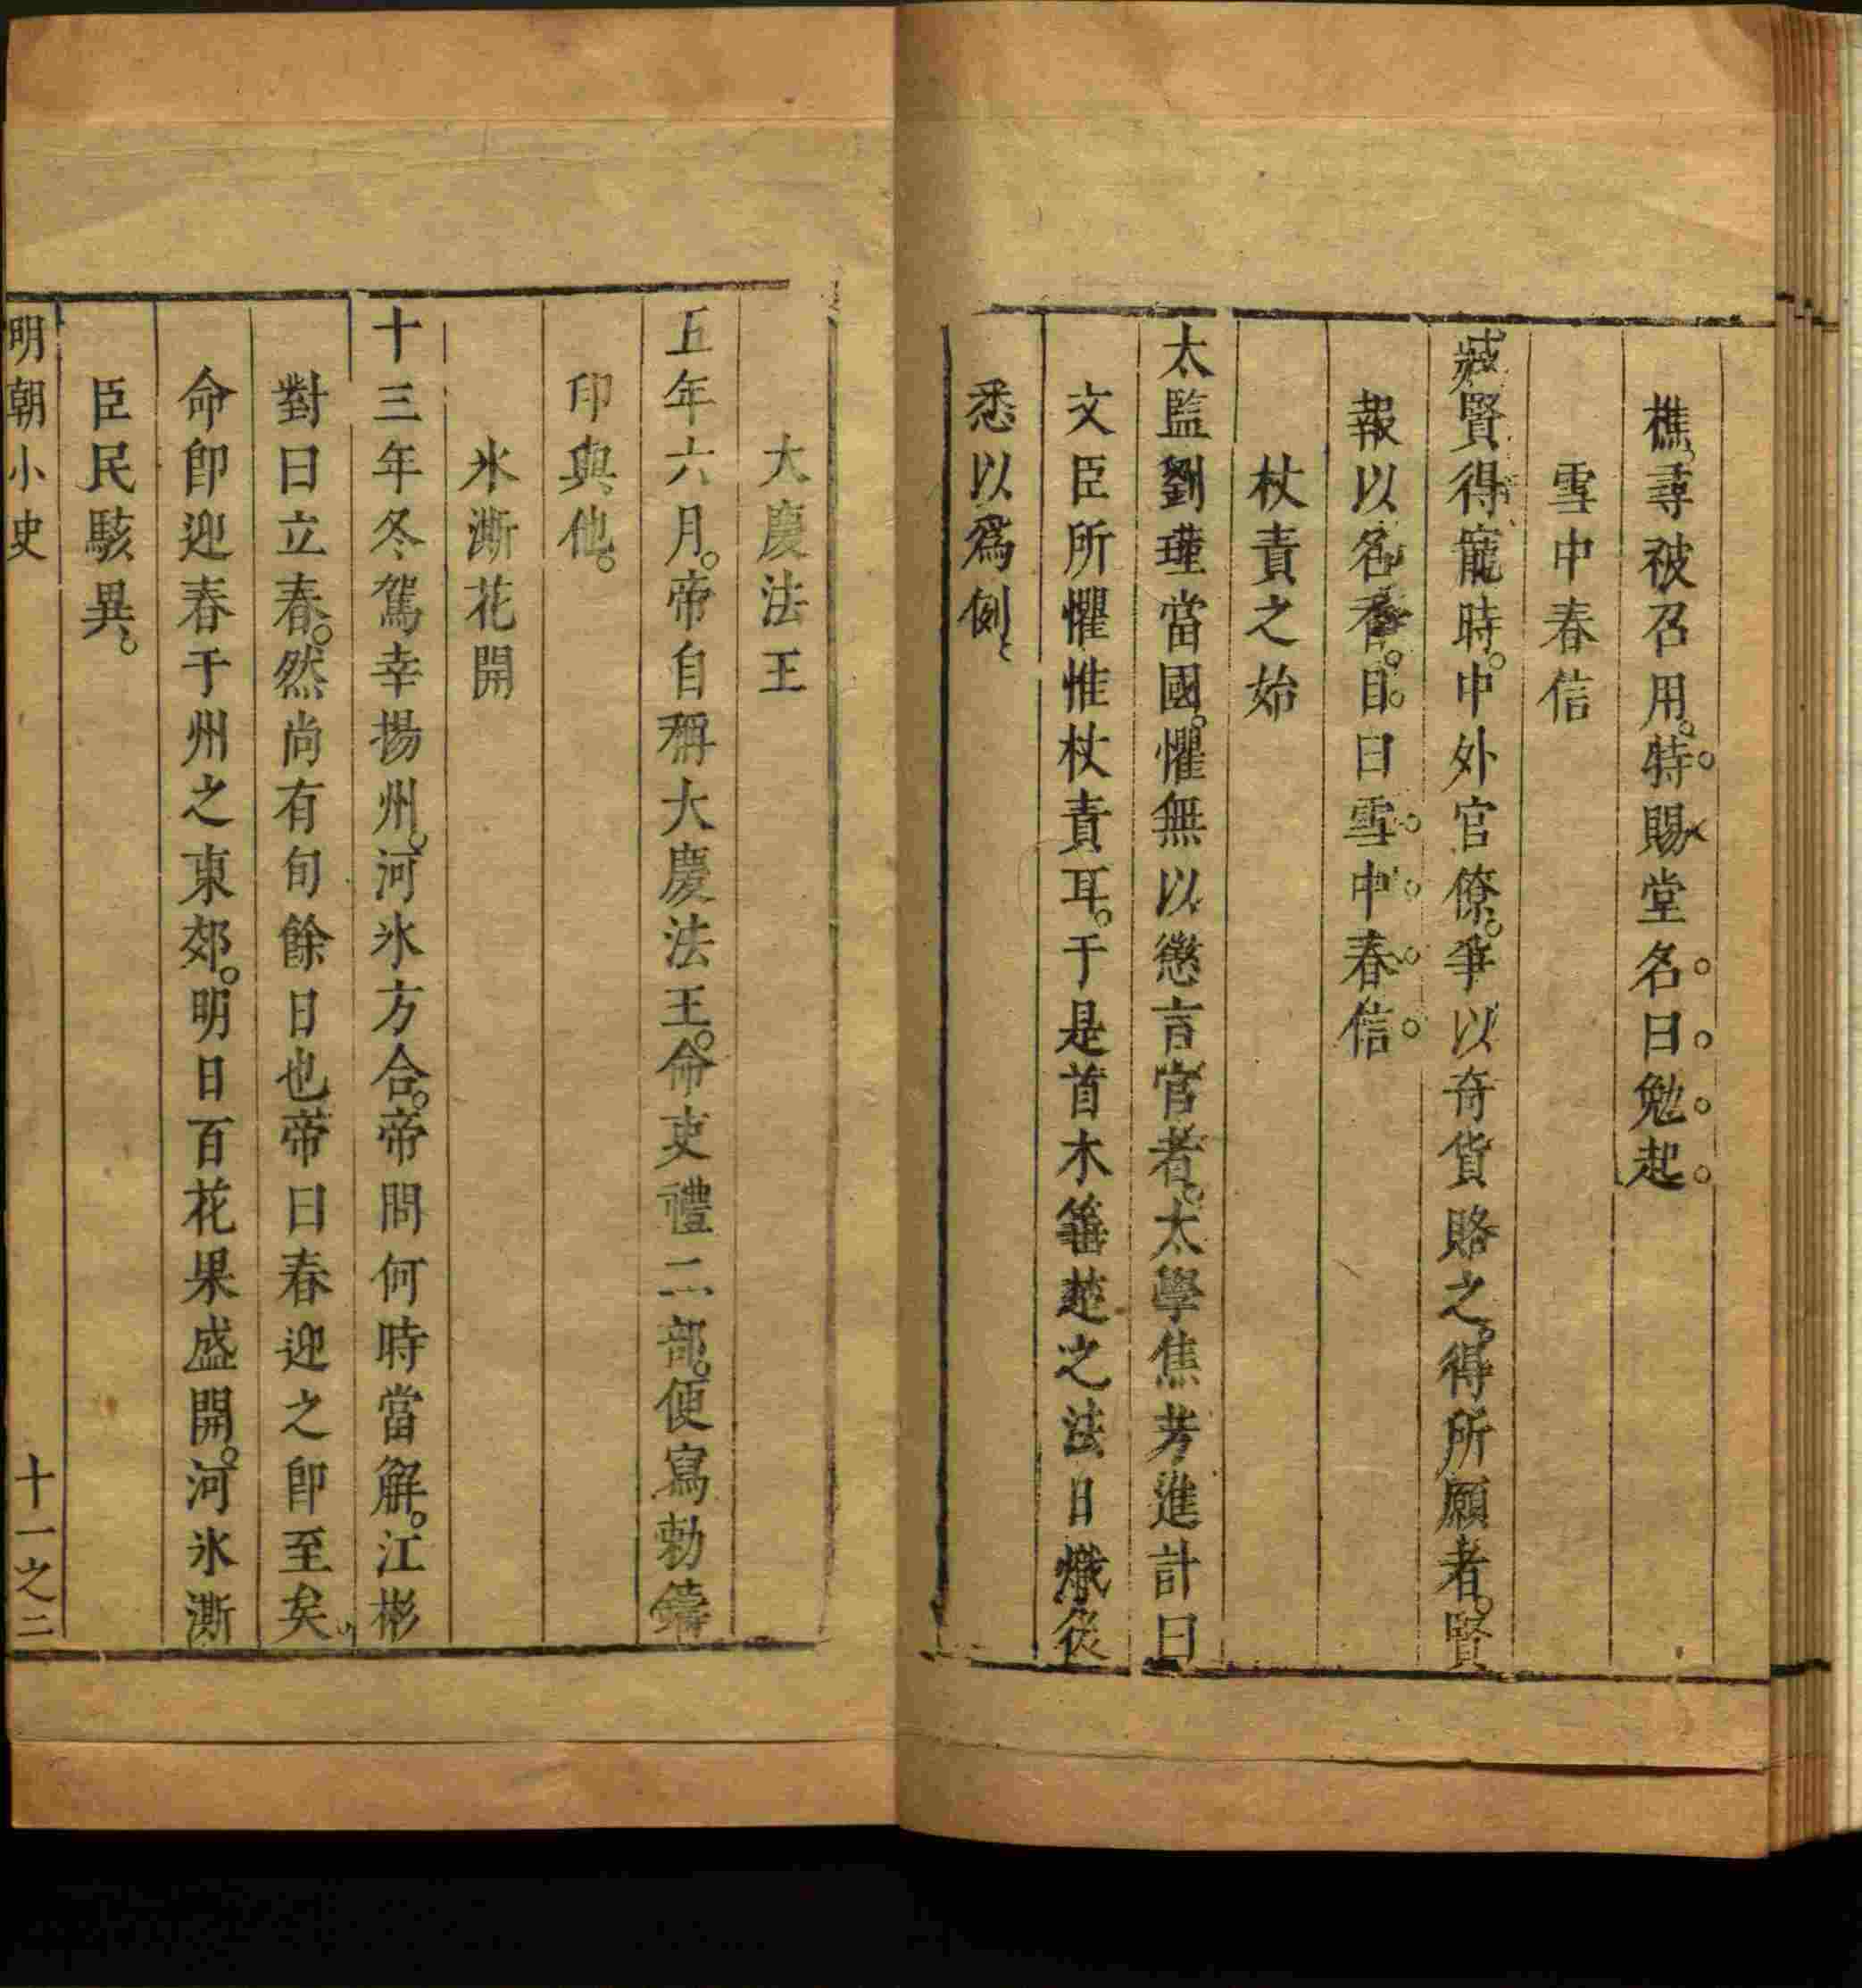 樵尋被召用。特賜堂名曰勉起
雪中春信
臧賢得寵時。中外官僚。爭以奇貨賂之。得所願者。賢
報以名香。目曰雪中春信
杖責之始
太監劉瑾當國。懼無以懲言官者。太學焦芳進計曰
文臣所懼惟杖責耳。于是首木箠楚之法日熾後
悉以爲例、
大慶法王
五年六月。帝自稱大慶法王。命吏禮二部。便寫勅鑄
印與他。
氷澌花開
十三年冬駕幸揚州。河氷方合。帝問何時當解。江彬
對曰立春。然尚有旬餘日也帝曰春迎之卽至矣。
命卽迎春于州之東郊。明日百花果盛開。河氷澌
臣民駭異。
明朝小史
十一之二